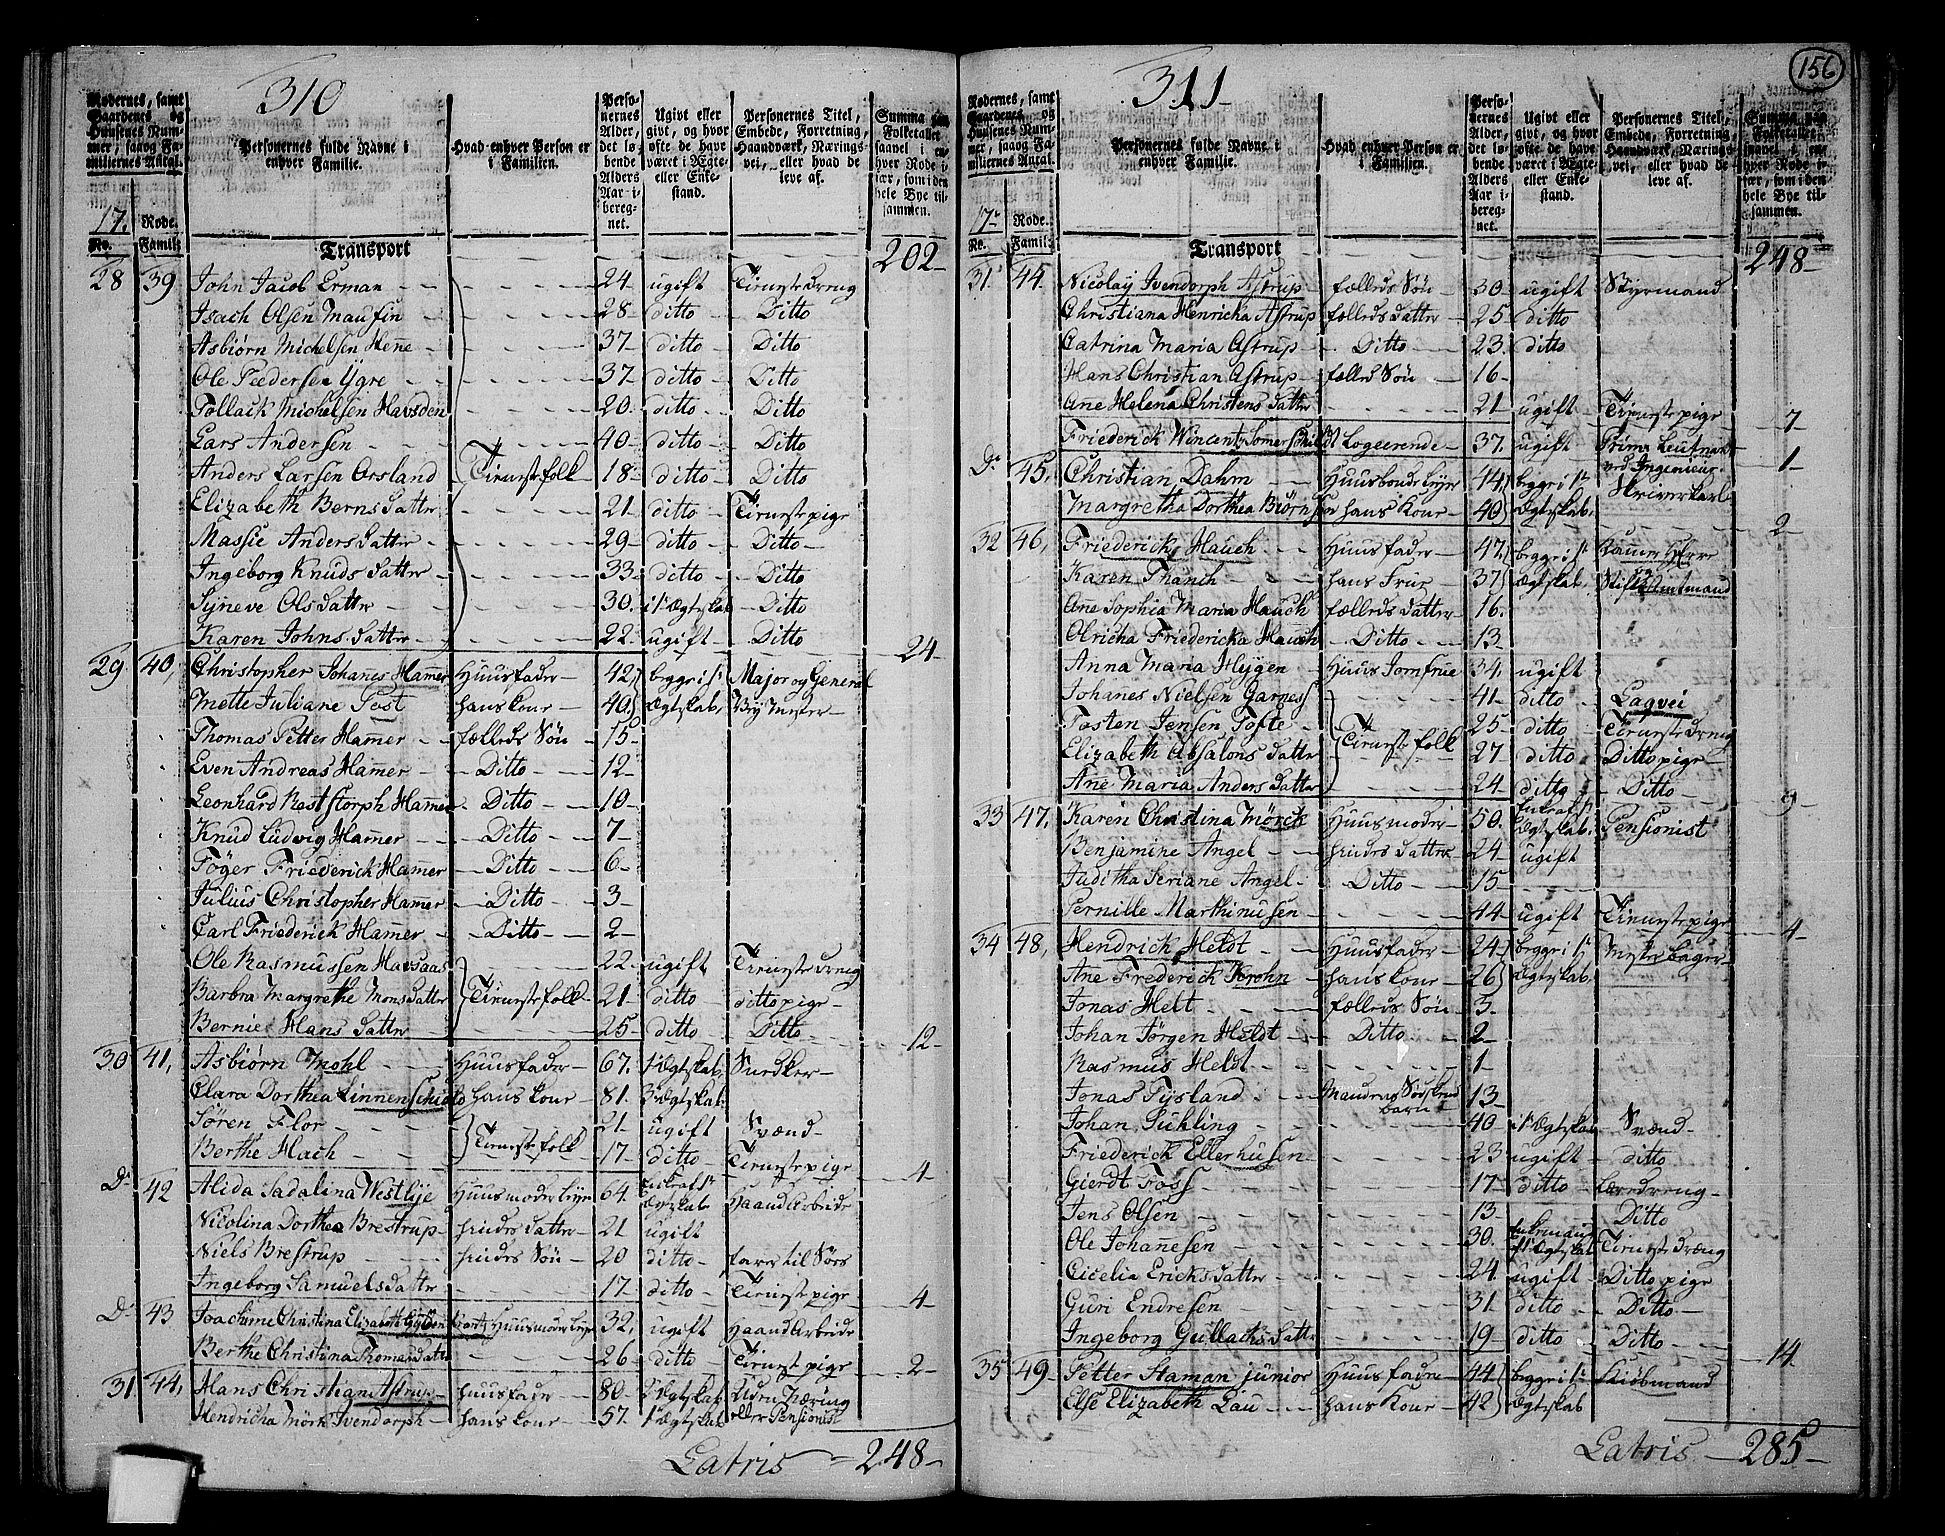 156
310
Rodernes, samt Gaardenes og Huusenes Nummer, saaog Familiernes Antal.
Personernes fulde Navne i enhver Familie.
Hvad enhver Person er i Familien.
Personernes Alder, det løbende Alders Aar iberegnet.
Ugivt eller givt, og hvor ofte de have været i Ægte- eller Enkestand.
Personernes Titel, Embede, Forretning, Haandværk, Næringsvei, eller hvad de leve af.
Summa paa Folketallet saavel i enhver Rode især, som i den hele Bye tilsammen.
17. Rode.
No. Famil:
Transport 202
28 39 John Jacob Erman 24 ugift Tieneste dreng
Isach Olsen Maufin 28 ditto Ditto
Asbiørn Michelsen Hene 37 ditto Ditto
Ole Pedersen Ygre 37 ditto Ditto
Tollack Michelsen Havsden 20 ditto Ditto
Lars Andersen 40 ditto Ditto
Anders Larsen Orsland Tieneste folk 18 ditto Ditto
Elizabeth Berns datter 21 ditto Tieneste pige
Massie Anders datter 29 ditto Ditto
Ingeborg Knuds datter 33 ditto Ditto
Syneve Ols datter 30 i 1t Ægteskab Ditto
Karen Johns datter 22 ugift Ditto 24
29 40 Christopher Johanes Hamer Huusfader 42 begge i 1t Major og General
Mette Juliane Post hans kone 40 Ægteskab Vejmester
Thomas Petter Hamer fælleds Søn 15
Even Andreas Hamer Ditto 12
Leonhard Kast storph Hamer Ditto 10
Knud Ludvig Hamer Ditto 7
Föger Friederich Hamer Ditto 6
Julius Christopher Hamer Ditto 3
Carl Friederich Hamer Ditto 2
Ole Rasmussen Havsaas 22 ugift Tieneste dreng
Barbra Margrethe Mons datter Tieneste folk 21 ditto ditto pige
Bernie Hans datter 25 ditto Ditto 12
30 41 Asbiørn Mohl Huusfader 67 1t Ægteskab Snedker
Clara Dorthea Linnenschiold hans kone 81 3t Ægteskab
Sören Flor 21 ugift Svend
Berthe Hach Tieneste folk 17 ditto Tieneste pige 4
Do 42 Alida Sadalina Westlye Huusmoder 64 Enke af 1t Ægteskab Haand Arbeide
Nicolina Dorthea Brestrup hendes datter 21 ugift
Niels Brestrup hendes Søn 20 ditto farer til Søes
Ingeborg Samuels datter 17 ditto Tieneste pige 4
Do 43 Joachime Christina Elizabeth Gylden Krantz Huusmoder 32 ugift Haand Arbeide
Berthe Christina Thomas datter 26 ditto Tieneste pige 2
31 44 Hans Christian Astrup huusfader 80 2t Ægteskab Uden Næring
Hendricha Mörk Ivendorph hans kone 57 1t Ægteskab eller Pensionist
Latris 248
311
Rodernes, samt Gaardenes og Huusenes Nummer, saaog Familiernes Antal.
Personernes fulde Navne i enhver Familie.
Hvad enhver Person er i Familien.
Personernes Alder, det løbende Alders Aar iberegnet.
Ugivt eller givt, og hvor ofte de have været i Ægte- eller Enkestand.
Personernes Titel, Embede, Forretning, Haandværk, Næringsvei, eller hvad de leve af.
Summa paa Folketallet saavel i enhver Rode især, som i den hele Bye tilsammen.
17 Rode.
No. Famil:
Transport 248
31 44 Nicolay Ivendorph Astrup fælleds Søn 30 ugift Styrmand
Christiana Henricha Astrup fælleds datter 25 ditto
Catrina Maria Astrup Ditto 23 ditto
Hans Christian Astrup fælleds Søn 16
Ane Helena Christens datter 21 ugift Tieneste pige 7
Friederich Wincentz Somerschildt Logerende 37 ugift Prime Leutnant ved Ingenieur 1
Do 45 Christian Dahm Huusbonde 44 begge i 1t Skriverkarl
Margretha Dorthea Biørnsen hans Kone 40 Ægteskab 2
32 46 Friederich Hauch Huusfader 47 begge i 1t Kammer Herre
Karen Thanch hans Frue 37 Ægteskab Stiftsamtmand
Ane Sophia Maria Hauch fælleds datter 16
Olricha Friedericka Hauch Ditto 13
Anna Maria Heygen Huus Jomfrue 34 ugift
Johanes Nielsen Garness 41 ditto Laqvei
Tosten Jensen Tofte Tieneste folk 25 ditto Tieneste dreng
Elizabeth Absalons datter 27 ditto Ditto pige
Ane Maria Anders datter 24 ditto Ditto 9
33 47 Karen Christina Mörck Huusmoder 50 Enke af 1t Ægteskab Pensionist
Benjamine Angel hendes datter 24 ugift
Juditha Seriane Angel Ditto 15
Pernille Marthinusen 44 ugift Tieneste pige 4
34 48 Hendrich Heldt Huusfader 24 begge i 1t Mester bager
Ane Frederick Krohn hans kone 26 Ægteskab
Jonas Helt fælleds Søn 3
Johan Jørgen Heldt Ditto 2
Rasmus Heldt 1
Jonas Tysland Mandens Sødskende barn 13
Johan Suhling 40 i 1t Ægteskab Svend
Friederich Ellerhusen 23 ugift ditto
Gierdt Foss 17 ditto Læredreng
Jens Olsen 13 Ditto
Ole Johannesen 30 Enkemand af 1t Ægteskab Tieneste dreng
Cicelia Erichs datter 24 ugift Ditto pige
Guri Endresen 31 ditto Ditto
Ingeborg Gullachs datter 19 ditto Ditto 14
35 49 Petter Haman junior Huusfader 44 begge i 1t Kiøbmand
Else Elizabeth Lau hans Kone 42 Ægteskab
Latris 285